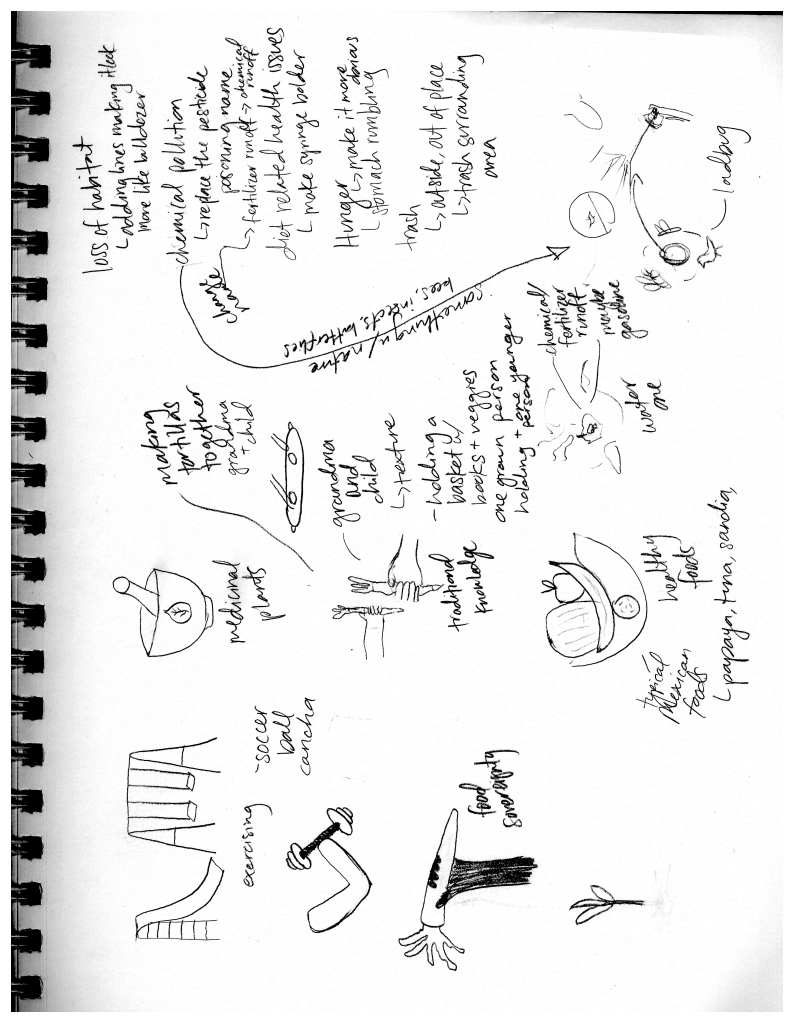 loss of habitat
↳adding lines making it look
more like bulldozer
chemical pollution
↳replace the pesticide
poisoning name
↳fertilizer runoff → chemical
runoff
diet related health issues
↳make syringe bolder
Hunger ↳make it more
obvious
↳stomach rumbling
trash
↳outside, out of place
↳trash surrounding
area
change
name
something w/ nature
bees, insects, butterflies
ladbug
making
tortillas
together
grandma
+ child
grandma
and
child
↳texture
-holding a
basket w/
books + veggies
one grown person
holding + one younger
person
chemical/
fertilizer
runoff,
maybe
gasoline
water
one
medicinal
plants
traditional
knowledge
healthy
foods
typical
Mexican
foods
↳papaya, tuna, sandia,
-soccer
ball
cancha
exercising
food
sovereignty